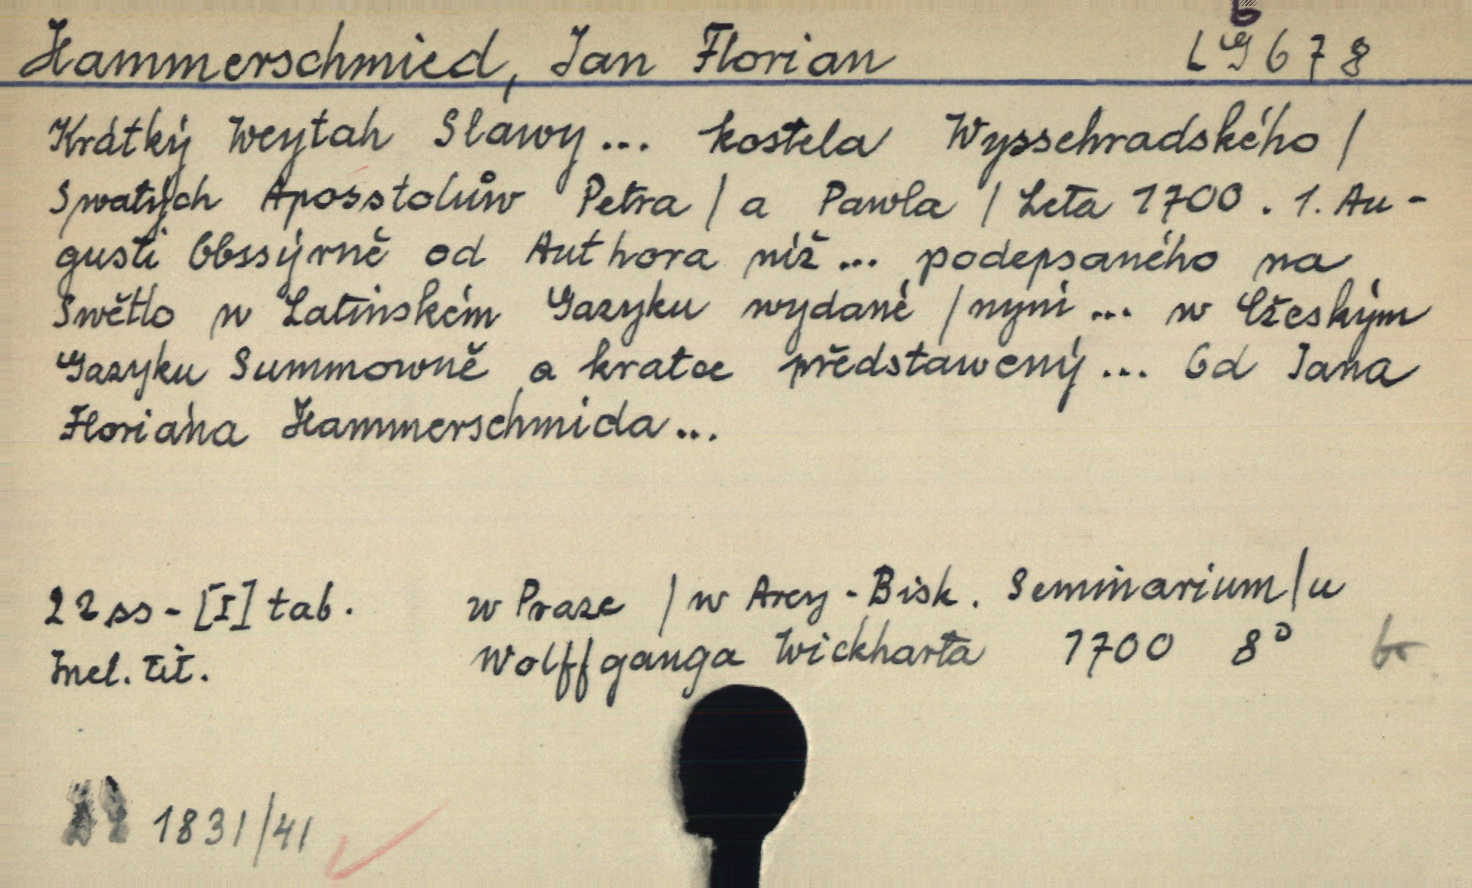 Hammerschmied, Jan Florian LG 678
Krátký Weytah Sławy... kostela Wyssehradského /
Swatých Aposstolůw Petra / a Pawla / Leta 1700. 1. Au-
gusti Obssýrně od Authora níž... podepsaného na
Swětlo w Latinském Gazyku wydané / nyni... w Cžeským
Gazyku Summowně a kratce představený... Od Jana
Floriána Hammerschmida...
22 ss - [I] tab. w Praze / w Arcy-Bisk. Seminarium / u
Incl. tit. Wolffganga Wickharta 1700 8°
1831/41